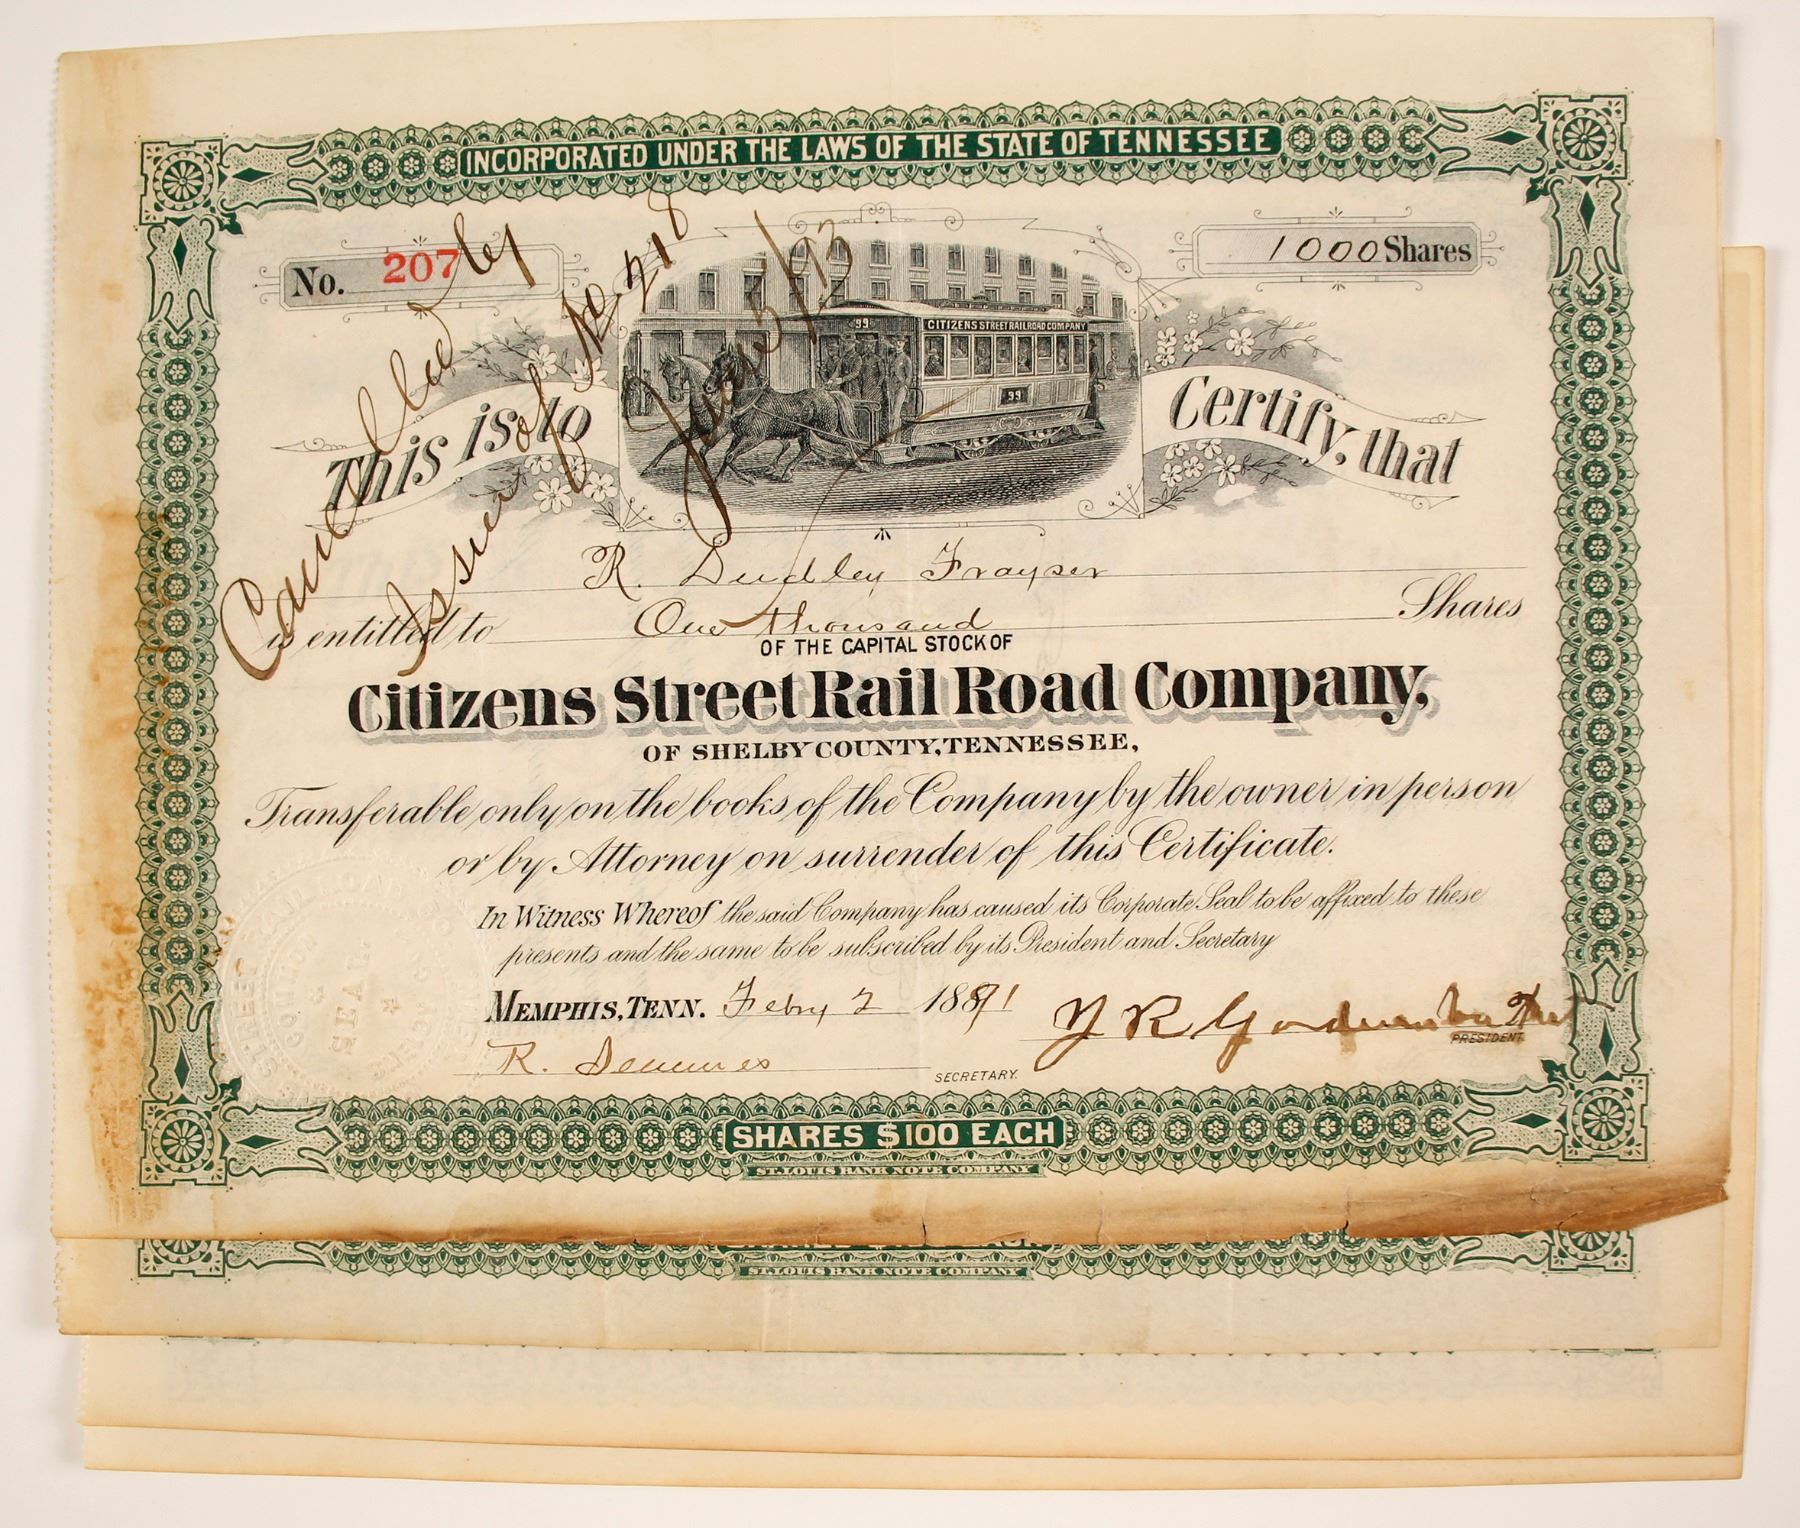 INCORPORATED UNDER THE LAWS OF THE STATE OF TENNESSEE
No. 207
1000 Shares
Cancelled by
Issue of No 218
5/93
99 CITIZENS STREET RAILROAD COMPANY
99
This is to Certify, that
R. Dudley Frayser
is entitled to One thousand Shares
OF THE CAPITAL STOCK OF
Citizens Street Rail Road Company,
OF SHELBY COUNTY, TENNESSEE,
Transferable only on the books of the Company by the owner in person
or by Attorney on surrender of this Certificate.
In Witness Whereof the said Company has caused its Corporate Seal to be affixed to these
presents and the same to be subscribed by its President and Secretary
MEMPHIS, TENN. Feby 2 1891
PRESIDENT.
R. Semmes SECRETARY.
SEAL
SHARES $100 EACH
ST. LOUIS BANK NOTE COMPANY
ST. LOUIS BANK NOTE COMPANY